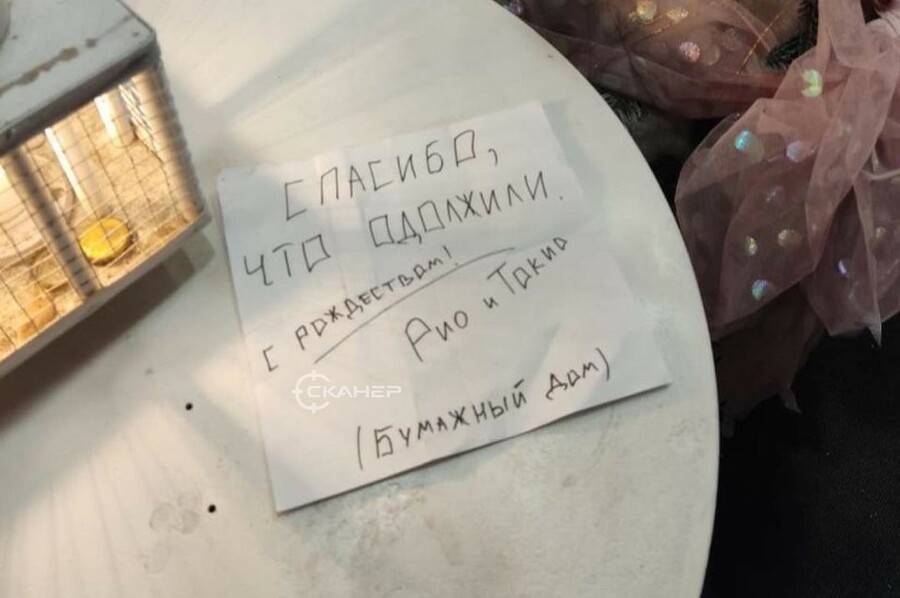 СПАСИБО,
ЧТО ОДОЛЖИЛИ.
С РОЖДЕСТВОМ!
Рио и Токио
(БУМАЖНЫЙ ДОМ)
СКАНЕР